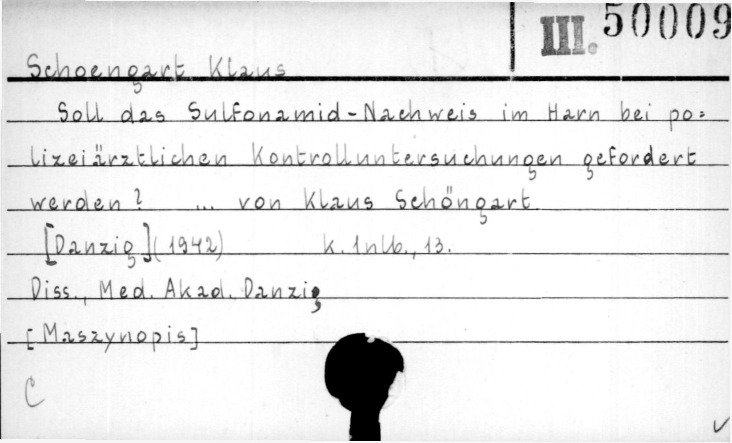 III. 50009
Schoengart Klaus
Soll das Sulfonamid-Nachweis im Harn bei po=
lizeiärztlichen Kontrolluntersuchungen gefordert
werden? ... von Klaus Schöngart
[Danzig] (1942) k. 1nlb., 13.
Diss., Med. Akad. Danzig
[Maszynopis]
C